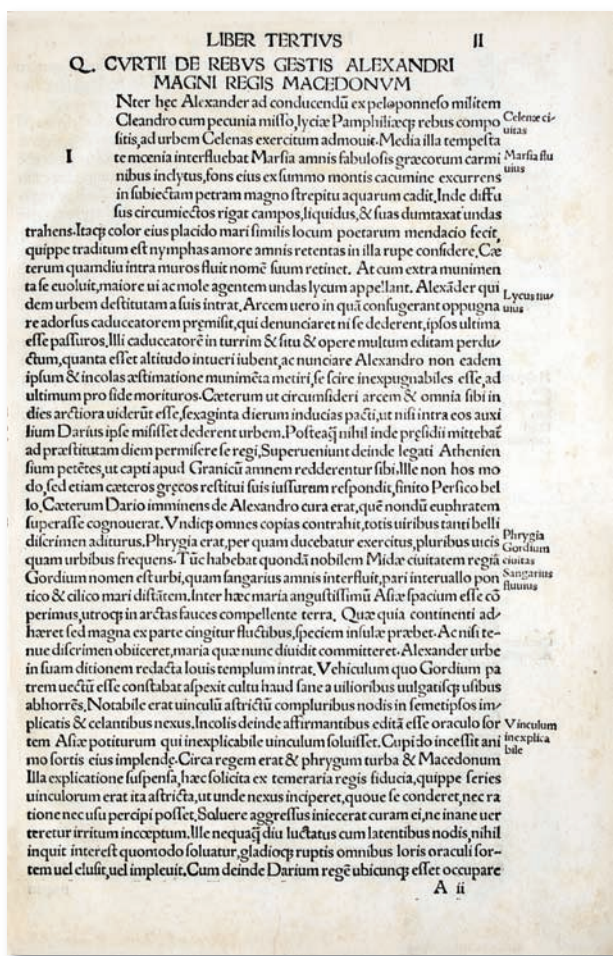 LIBER TERTIVS II
Q. CVRTII DE REBVS GESTIS ALEXANDRI
MAGNI REGIS MACEDONVM
I
Nter hęc Alexander ad conducendū ex peloponneso militem
Cleandro cum pecunia misso, lyciæ Pamphiliæq; rebus compo
sitis, ad urbem Celenas exercitum admouit. Media illa tempesta
te mœnia interfluebat Marsia amnis fabulosis græcorum carmi
nibus indytus, fons eius ex summo montis cacumine excurrens
in subiectam petram magno strepitu aquarum cadit. Inde diffu
sus circumiectos rigat campos, liquidus, & suas dumtaxat undas
trahens. Itaq; color eius placido mari similis locum poetarum mendacio fecit,
quippe traditum est nymphas amore amnis retentas in illa rupe considere. Cæ
terum quamdiu intra muros fluit nomē suum retinet. At cum extra munimen
ta se euoluit, maiore ui ac mole agentem undas lycum appellant. Alexāder qui
dem urbem destitutam a suis intrat. Arcem uero in quā confugerant oppugna
re adorsus caduceatorem pręmisit, qui denunciaret ni se dederent, ipsos ultima
esse passuros. Illi caduceatorē in turrim & situ & opere multum editam perdu-
ctum, quanta esset altitudo intueri iubent, ac nunciare Alexandro non eadem
ipsum & incolas æstimatione munimēta metiri, se scire inexpugnabiles esse, ad
ultimum pro fide morituros. Cæterum ut circumsideri arcem & omnia sibi in
dies arctiora uiderūt esse, sexaginta dierum inducias pacti, ut nisi intra eos auxi
lium Darius ipse misisset dederent urbem. Posteaq̄ nihil inde pręsidii mittebat̄
ad præstitutam diem permisere se regi. Superueniunt deinde legati Athenien
sium petētes, ut capti apud Granicū amnem redderentur sibi. Ille non hos mo
do, sed etiam cæteros gręcos restitui suis iussurum respondit, finito Persico bel
lo. Cæterum Dario imminens de Alexandro cura erat, quē nondū euphratem
superasse cognouerat. Vndiq; omnes copias contrahit, totis uiribus tanti belli
discrimen aditurus. Phrygia erat, per quam ducebatur exercitus, pluribus uicis
quam urbibus frequens. Tūc habebat quondā nobilem Midæ ciuitatem regiā
Gordium nomen est urbi, quam sangarius amnis interfluit, pari interuallo pon
tico & cilico mari distātem. Inter hæc maria angustissimū Asiæ spacium esse cō
perimus, utroq; in arctas fauces compellente terra. Quæ quia continenti ad-
hæret sed magna ex parte cingitur fluctibus, speciem insulæ præbet. Ac nisi te-
nue discrimen obiiceret, maria quæ nunc diuidit committeret. Alexander urbe
in suam ditionem redacta Iouis templum intrat. Vehiculum quo Gordium pa
trem uectū esse constabat aspexit cultu haud sane a uilioribus uulgatisq; usibus
abhorrēs. Notabile erat uinculū astrictū compluribus nodis in semetipsos im-
plicatis & celantibus nexus. Incolis deinde affirmantibus editā esse oraculo sor
tem Asiæ potiturum qui inexplicabile uinculum soluisset. Cupido incessit ani
mo sortis eius implendę. Circa regem erat & phrygum turba & Macedonum
Illa explicatione suspensa, hæc solicita ex temeraria regis fiducia, quippe series
uinculorum erat ita astricta, ut unde nexus inciperet, quoue se conderet, nec ra
tione nec usu percipi posset. Soluere aggressus iniecerat curam ei, ne inane uer
teretur irritum incœptum. Ille nequaq̄ diu luctatus cum latentibus nodis, nihil
inquit interest quomodo soluatur, gladioq; ruptis omnibus loris oraculi sor-
tem uel elusit, uel impleuit. Cum deinde Darium regē ubicunq; esset occupare
A ii
Celenæ ci-
uitas
Marsia flu
uius
Lycus flu-
uius
Phrygia
Gordium
ciuitas
Sangarius
fluuius
Vinculum
inexplica
bile